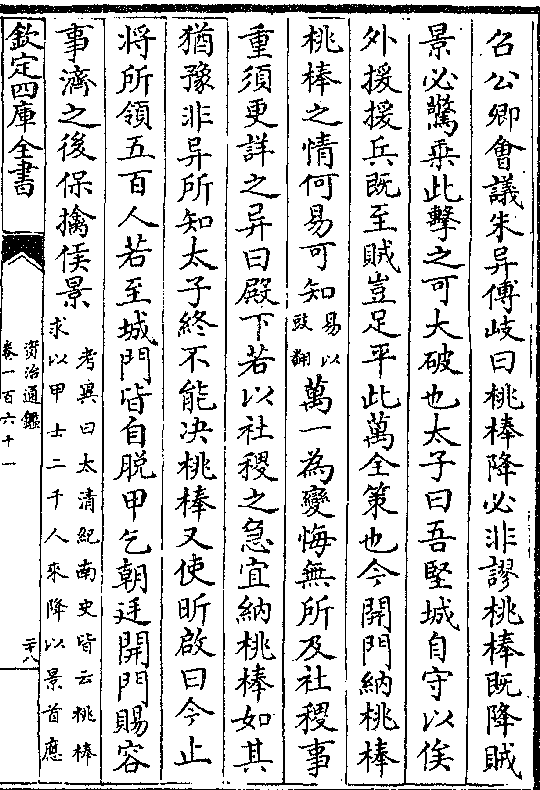 召公卿會議朱异傅岐曰桃棒降必非謬桃棒既降賊
景必驚乗此擊之可大破也太子曰吾堅城自守以俟
外援援兵既至賊豈足平此萬全策也今開門納桃棒
桃棒之情何易可知易以豉翻萬一為變悔無所及社稷事
重須更詳之异曰殿下若以社稷之急宜納桃棒如其
猶豫非异所知太子終不能決桃棒又使昕啟曰今止
将所領五百人若至城門皆自脱甲乞朝廷開門賜容
事濟之後保擒侯景考異曰太清紀南史皆云桃棒求以甲士二千人來降以景首應
欽定四庫全書
資治通鑑
卷一百六十一
二十八